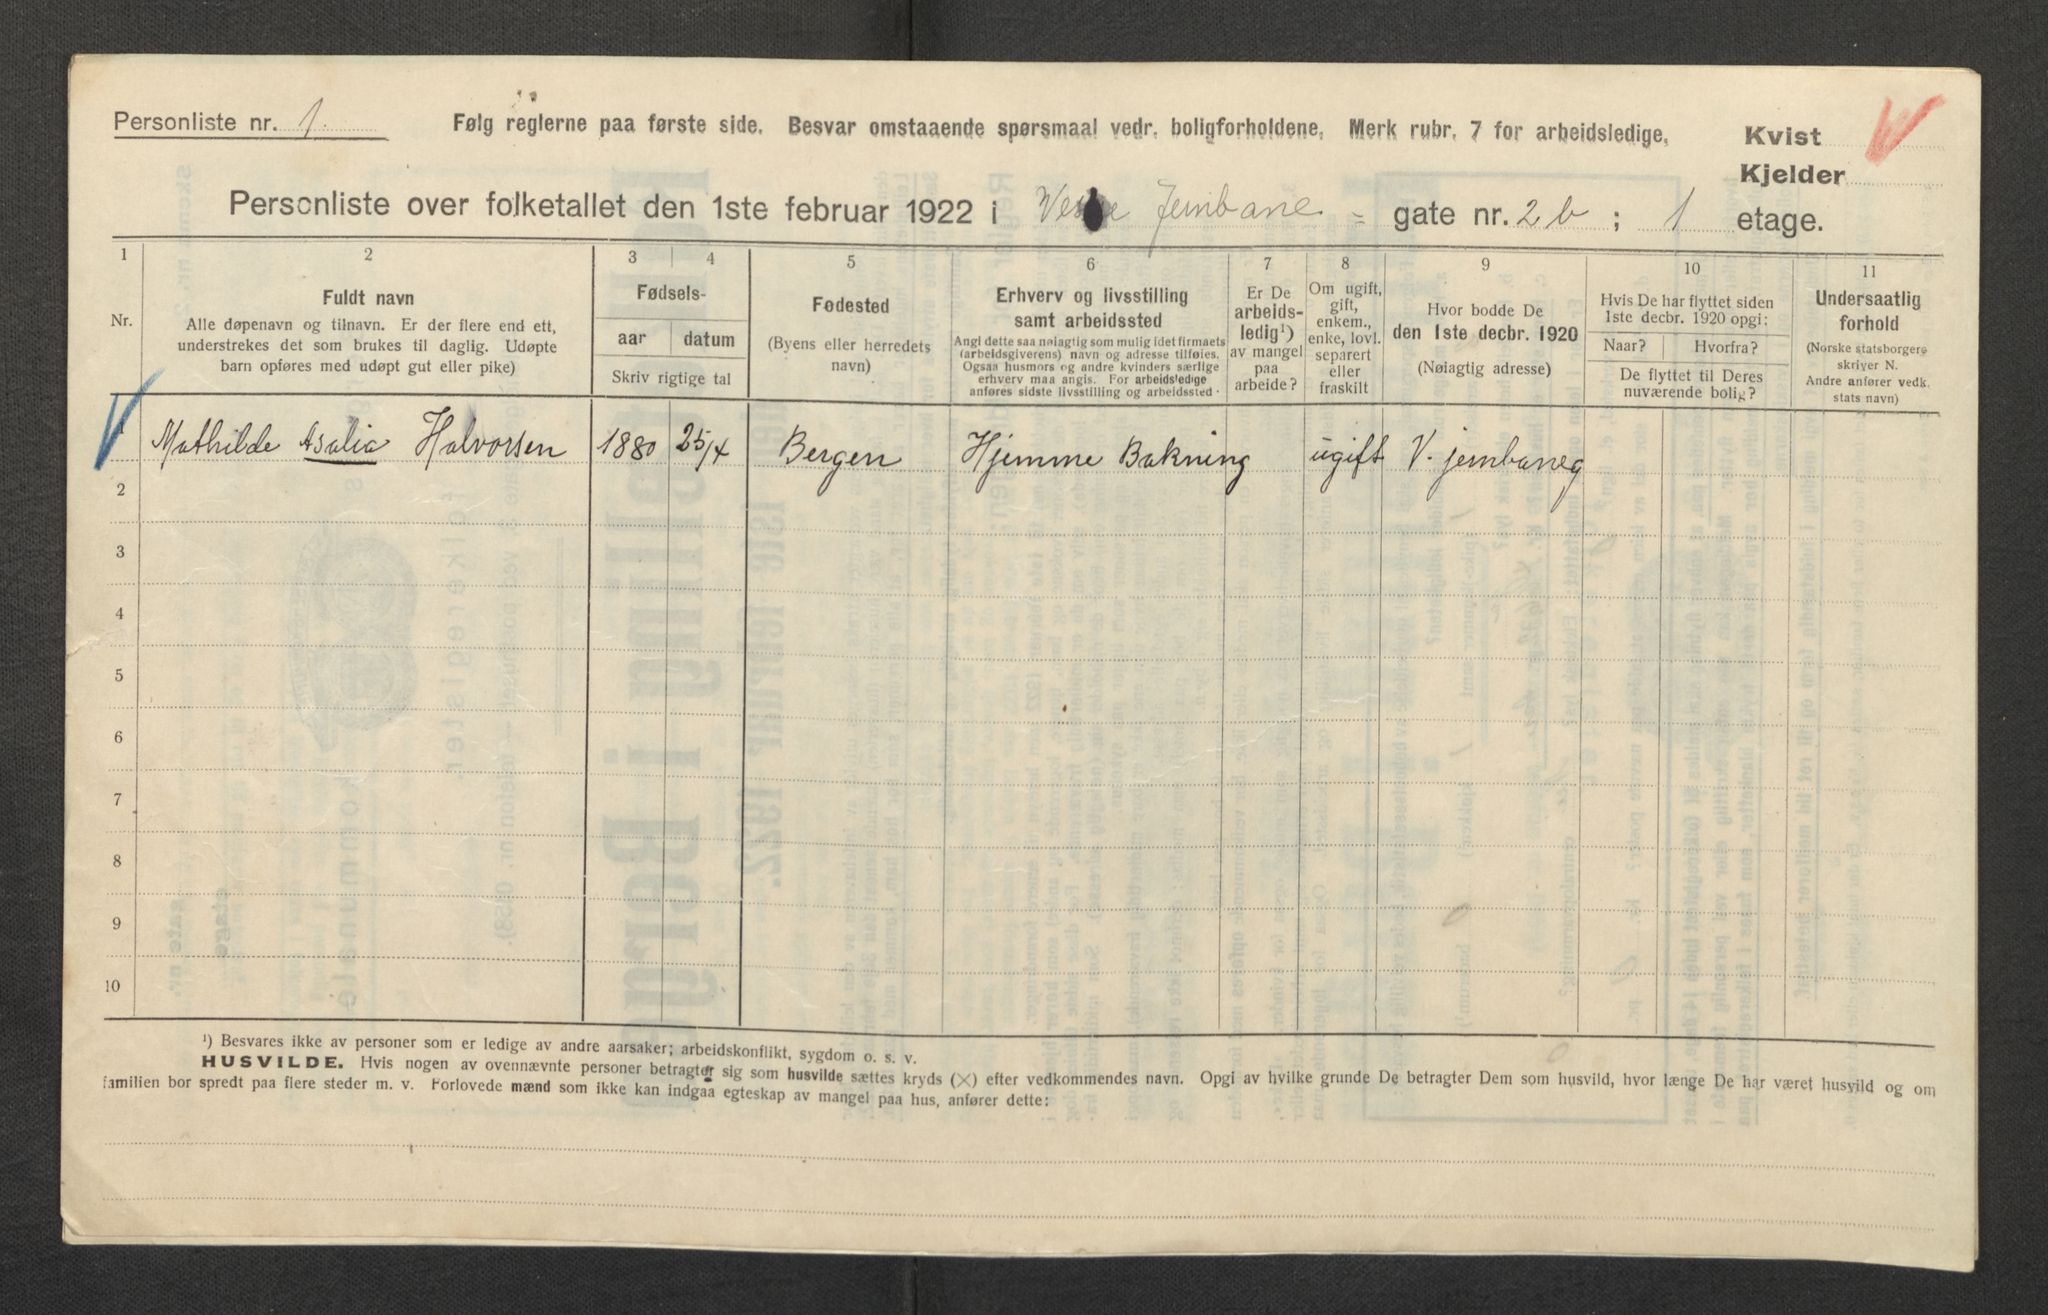 Personliste nr. 1.
Følg reglerne paa første side. Besvar omstaaende spørsmaal vedr. boligforholdene. Merk rubr. 7 for arbeidsledige.
Kvist
Kjelder
Personliste over folketallet den 1ste februar 1922 i Vestre Jernbane - gate nr. 2 b ; 1 etage.
1
2
3
4
5
6
7
8
9
10
11
Nr.
Fuldt navn
Alle døpenavn og tilnavn. Er der flere end ett,
understrekes det som brukes til daglig. Udøpte
barn opføres med udøpt gut eller pike)
Fødsels-
aar
datum
Skriv rigtige tal
Fødested
(Byens eller herredets
navn)
Erhverv og livsstilling
samt arbeidssted
Angi dette saa nøiagtig som mulig idet firmaets
(arbeidsgiverens) navn og adresse tilføies.
Ogsaa husmors og andre kvinders særlige
erhverv maa angis. For arbeidsledige
anføres sidste livsstilling og arbeidssted.
Er De
arbeids-
ledig¹)
av mangel
paa
arbeide?
Om ugift,
gift,
enkem.,
enke, lovl.
separert
eller
fraskilt
Hvor bodde De
den 1ste decbr. 1920
(Nøiagtig adresse)
Hvis De har flyttet siden
1ste decbr. 1920 opgi:
Naar?
Hvorfra?
De flyttet til Deres
nuværende bolig?
Undersaatlig
forhold
(Norske statsborgere
skriver N.
Andre anfører vedk.
stats navn)
1 Mathilde Asalia Halvorsen 1880 25/4 Bergen Hjemme Bakning ugift V. jernbaneg
2
3
4
5
6
7
8
9
10
¹) Besvares ikke av personer som er ledige av andre aarsaker; arbeidskonflikt, sygdom o. s. v.
HUSVILDE. Hvis nogen av ovennævnte personer betragter sig som husvilde sættes kryds (×) efter vedkommendes navn. Opgi av hvilke grunde De betragter Dem som husvild, hvor længe De har været husvild og om
familien bor spredt paa flere steder m. v. Forlovede mænd som ikke kan indgaa egteskap av mangel paa hus, anfører dette: